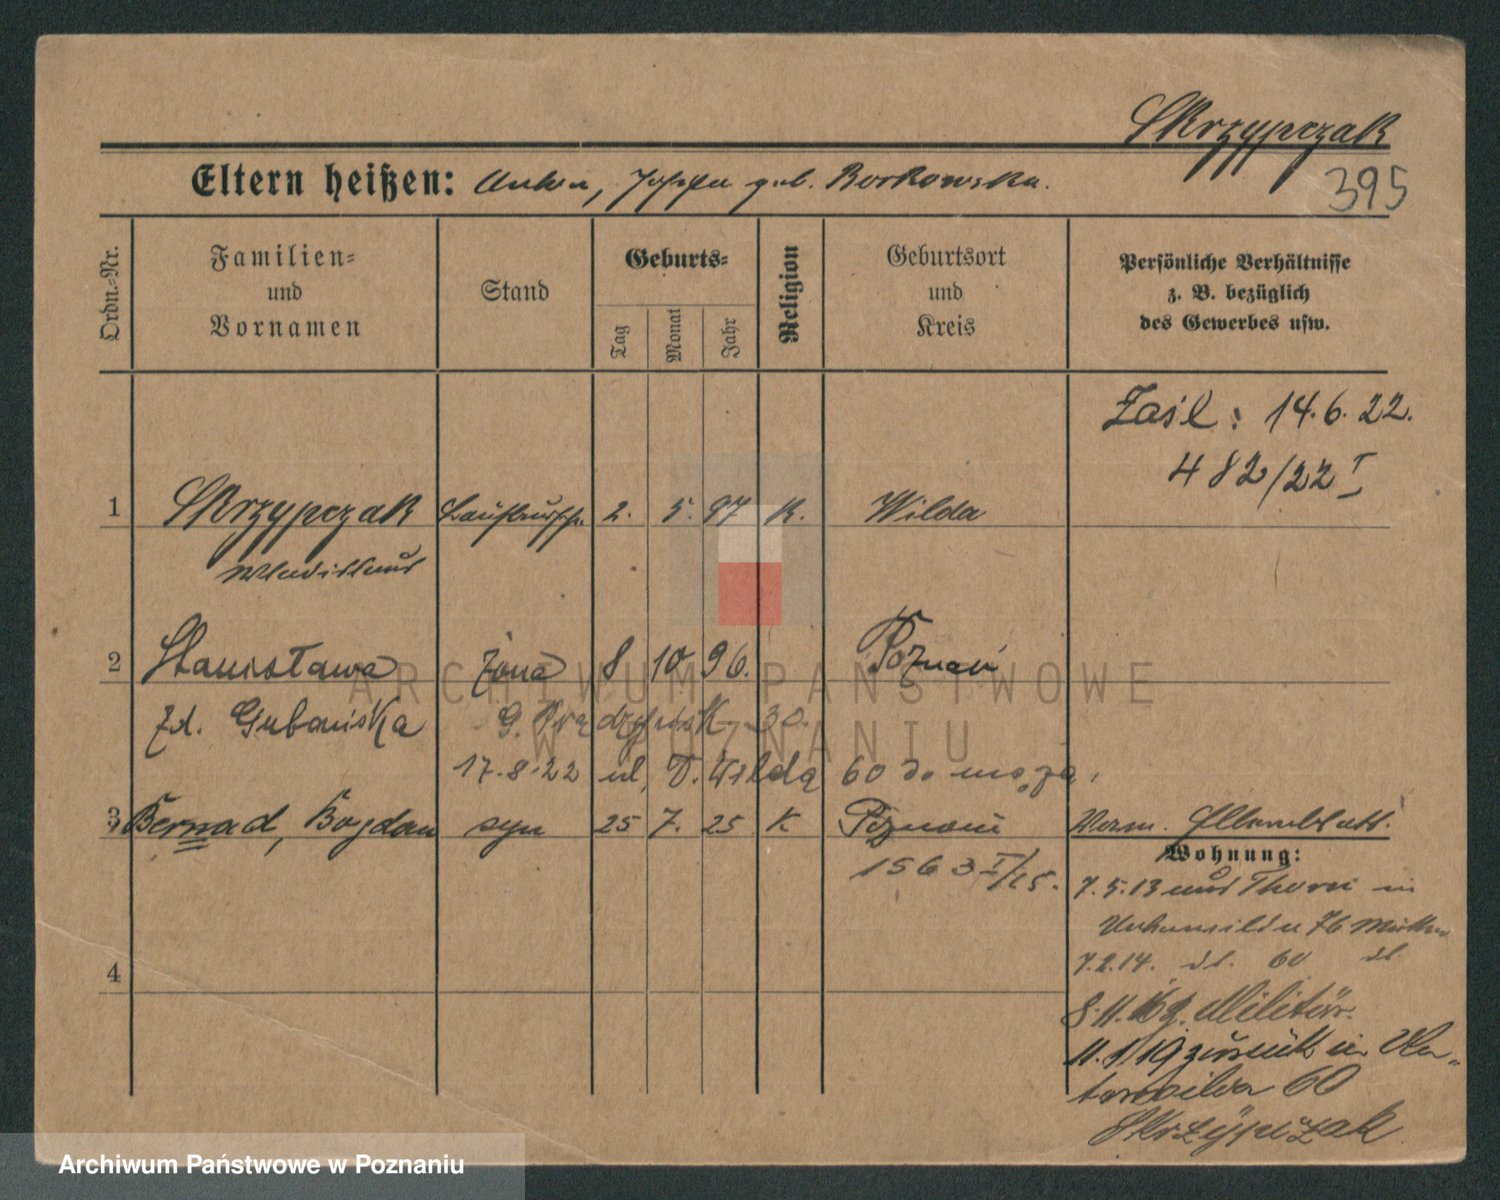 Skrzypczak
Eltern heißen: geb. Borkowska.
395
Ordn.-Nr.
Familien-
und
Vornamen
Stand
Geburts-
Tag
Monat
Jahr
Religion
Geburtsort
und
Kreis
Persönliche Verhältnisse
z. B. bezüglich
des Gewerbes usw.
Zaśl: 14.6.22.
482/22 I
1 Skrzypczak 2. 5. 97 K. Wilda
2 Stanisława żona 8 10 96. Poznań
zd. Gubańska G. Prądzyńsk. 30.
17.8.22 ul. D. Wilda 60 do męża.
3 Bernad, Bogdan syn 25 7. 25 K Poznań
1563 I/25.
Wohnung:
7.5.13 Thorn in
Unterwilda 76
7.2.14. dt. 60
8.11. Militär.
11.1.19 zurück in Un-
terwilda 60
Skrzypczak
4
ARCHIWUM PAŃSTWOWE
W POZNANIU
Archiwum Państwowe w Poznaniu